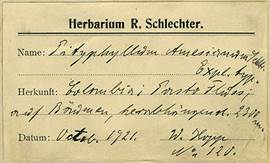 Herbarium R. Schlechter.
Name: Pityphyllum Amesianum Schltr.
Expl. typ.
Herkunft: Colombia: Pasto Fluss,
auf Bäumen, herabhängend. 2300 m
Datum: Octob. 1921. W. Hopp
No 120.